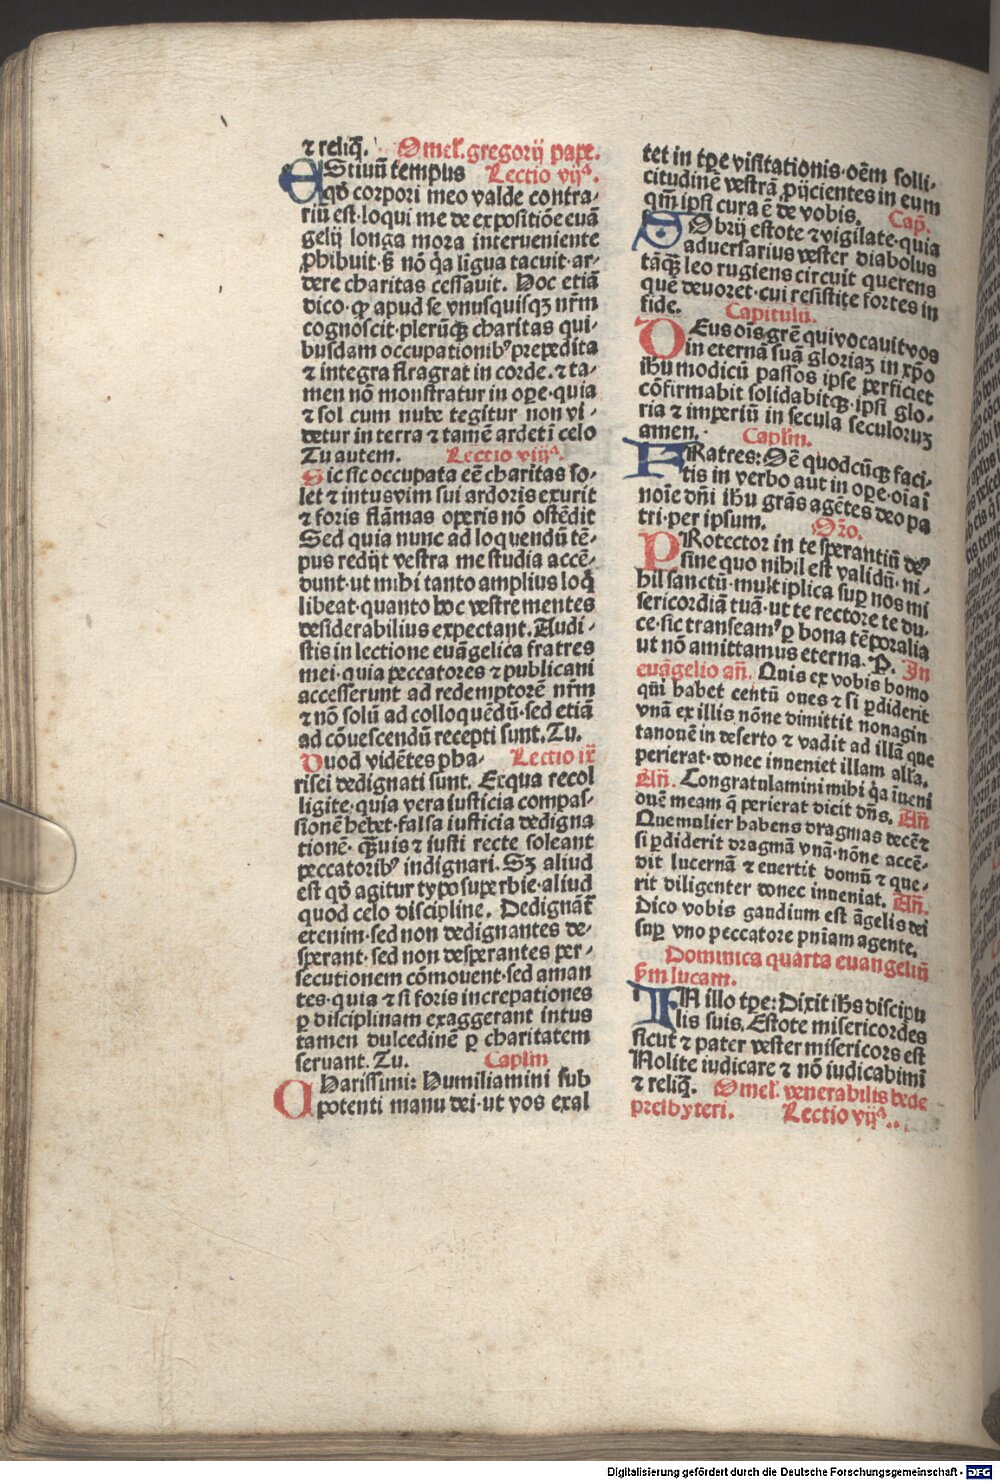 ⁊ reliq̄. Omeł. gregorij pape.
EStiuū tempus Lectio vijᵃ.
qꝺ̄ corpori meo valde contra-
riū est·loqui me de expositiōe euā
gelij longa mora interueniente
ꝓhibuit·s̄ nō q̇a līgua tacuit·ar-
dere charitas cessauit. Hoc etiā
dico·ꝙ apud se vnusquisqꝫ nr̄m
cognoscit·plerūqꝫ charitas qui-
busdam occupationibꝰ prepedita
⁊ integra flragrat in corde·⁊ ta-
men nō monstratur in oꝑe·quia
⁊ sol cum nube tegitur non vi-
detur in terra ⁊ tamē ardet ī celo
Tu autem. Lectio viijᵃ.
Sic sic occupata eē charitas so-
let ⁊ intus vim sui ardoris exurit
⁊ foris flāmas operis nō ostēdit
Sed quia nunc ad loquendū tē-
pus redijt vestra me studia accē-
dunt·ut mihi tanto amplius loq̇
libeat·quanto hoc vestre mentes
desiderabilius expectant. Audi-
stis in lectione euāgelica fratres
mei·quia peccatores ⁊ publicani
accesserunt ad redemptorē nr̄m
⁊ nō solū ad colloquēdū·sed etiā
ad cōuescendū recepti sunt. Tu.
Quod vidētes pha- Lectio ix
risei dedignati sunt. Ecqua recol
ligite·quia vera iusticia compas-
sionē hebet·falsa iusticia dedigna
tionē· qꝫuis ⁊ iusti recte soleant
peccatoribꝰ indignari. Sꝫ aliud
est qꝺ̄ agitur typo superbie·aliud
quod celo discipline. Dedignāt̄
etenim·sed non dedignantes de-
sperant·sed non desperantes per-
secutionem cōmouent·sed aman
tes·quia ⁊ si foris increpationes
ꝑ disciplinam exaggerant intus
tamen dulcedinē ꝑ charitatem
seruant. Tu. Caplm
CHarissimi: Humiliamini sub
potenti manu dei·ut vos exal
tet in tꝑe visitationis·oēm solli-
citudinē vestrā ꝓijcientes in eum
qm̄ ipsi cura ē de vobis. Cap̄.
SObrij estote ⁊ vigilate·quia
aduersarius vester diabolus
tāqꝫ leo rugiens circuit querens
quē deuoret·cui resistite fortes in
fide. Capitulū.
DEus oīs grē qui vocauit vos
in eternā suā gloriaꝫ in xp̄o
ihū modicū passos ipse perficiet
cōfirmabit solidabitqꝫ·ipsi glo-
ria ⁊ imperiū in secula seculoruꝫ
amen. Caplm.
FRatres: Oē quodcūqꝫ faci-
tis in verbo aut in oꝑe·oīa ī
noīe dn̄i ihū grās agētes deo pa
tri·per ipsum. Oro.
PRotector in te sperantiū deꝰ
sine quo nihil est validū·ni-
hil sanctū·multiplica suꝑ nos mi
sericordiā tuā·ut te rectore te du-
ce·sic transeamꝰ ꝑ bona tēporalia
ut nō amittamus eterna. P. In
euāgelio an̄. Quis ex vobis homo
qūi habet centū oues ⁊ si ꝑdiderit
vnā ex illis nōne dimittit nonagin
tanouē in deserto ⁊ vadit ad illā que
perierat·donec inueniet illam alla.
An̄. Congratulamini mihi q̇a īueni
ouē meam q̄ perierat dicit dn̄s. An̄
Que mulier habens dragmas decē ⁊
si ꝑdiderit dragmā vnā·nōne accē-
dit lucernā ⁊ euertit domū ⁊ que-
rit diligenter donec inueniat. An̄.
Dico vobis gaudium est āgelis dei
suꝑ vno peccatore pn̄iam agente.
Dominica quarta euangeliū
ẜm lucam.
IN illo tꝑe: Dixit ihs̄ discipu
lis suis. Estote misericordes
sicut ⁊ pater vester misericors est
Nolite iudicare ⁊ nō iudicabimī
⁊ reliq̄. Omeł. venerabilis bede
presbyteri. Lectio vijᵃ.
Digitalisierung gefördert durch die Deutsche Forschungsgemeinschaft - DFG